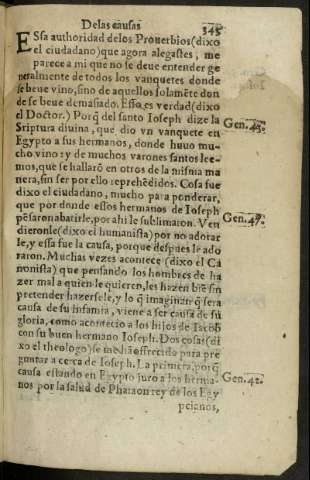 De las causas
345
ESsa authoridad delos Prouerbios (dixo
el ciudadano) que agora alegastes, me
parece a mi que no se deue entender ge
neralmente de todos los vanquetes donde
se beue vino, sino de aquellos solamēte don
de se beue demasiado. Esso es verdad (dixo
el Doctor.) Porq̃ del santo Ioseph dize la
Sriptura diuina, que dio vn vanquete en
Gen. 43.
Egypto a sus hermanos, donde huuo mu-
cho vino: y de muchos varones santos lee-
mos, que se hallarō en otros de la misma ma
nera, sin ser por ello reprehēdidos. Cosa fue
dixo el ciudadano, mucho para ponderar,
que por donde essos hermanos de Ioseph
pēsaron abatirle, por ahi le sublimaron. Ven
Gen. 47.
dieronle (dixo el humanista) por no adorar
le, y essa fue la causa, porque despues le ado
raron. Muchas vezes acontece (dixo el Ca
nonista) que pensando los hombres de ha
zer mal a quien le quieren, les hazen biē sin
pretender hazersele, y lo q̃ imaginan q̃ sera
causa de su infamia, viene a ser causa de su
gloria, como acontecio a los hijos de Iacob
con su buen hermano Ioseph. Dos cosas (di
xo el theologo) se me hā offrecido para pre
guntar a cerca de Ioseph. La primera, porq̃
causa estando en Egypto juro a los herma-
Gen. 42.
nos por la salud de Pharaon rey de los Egy
pcianos,